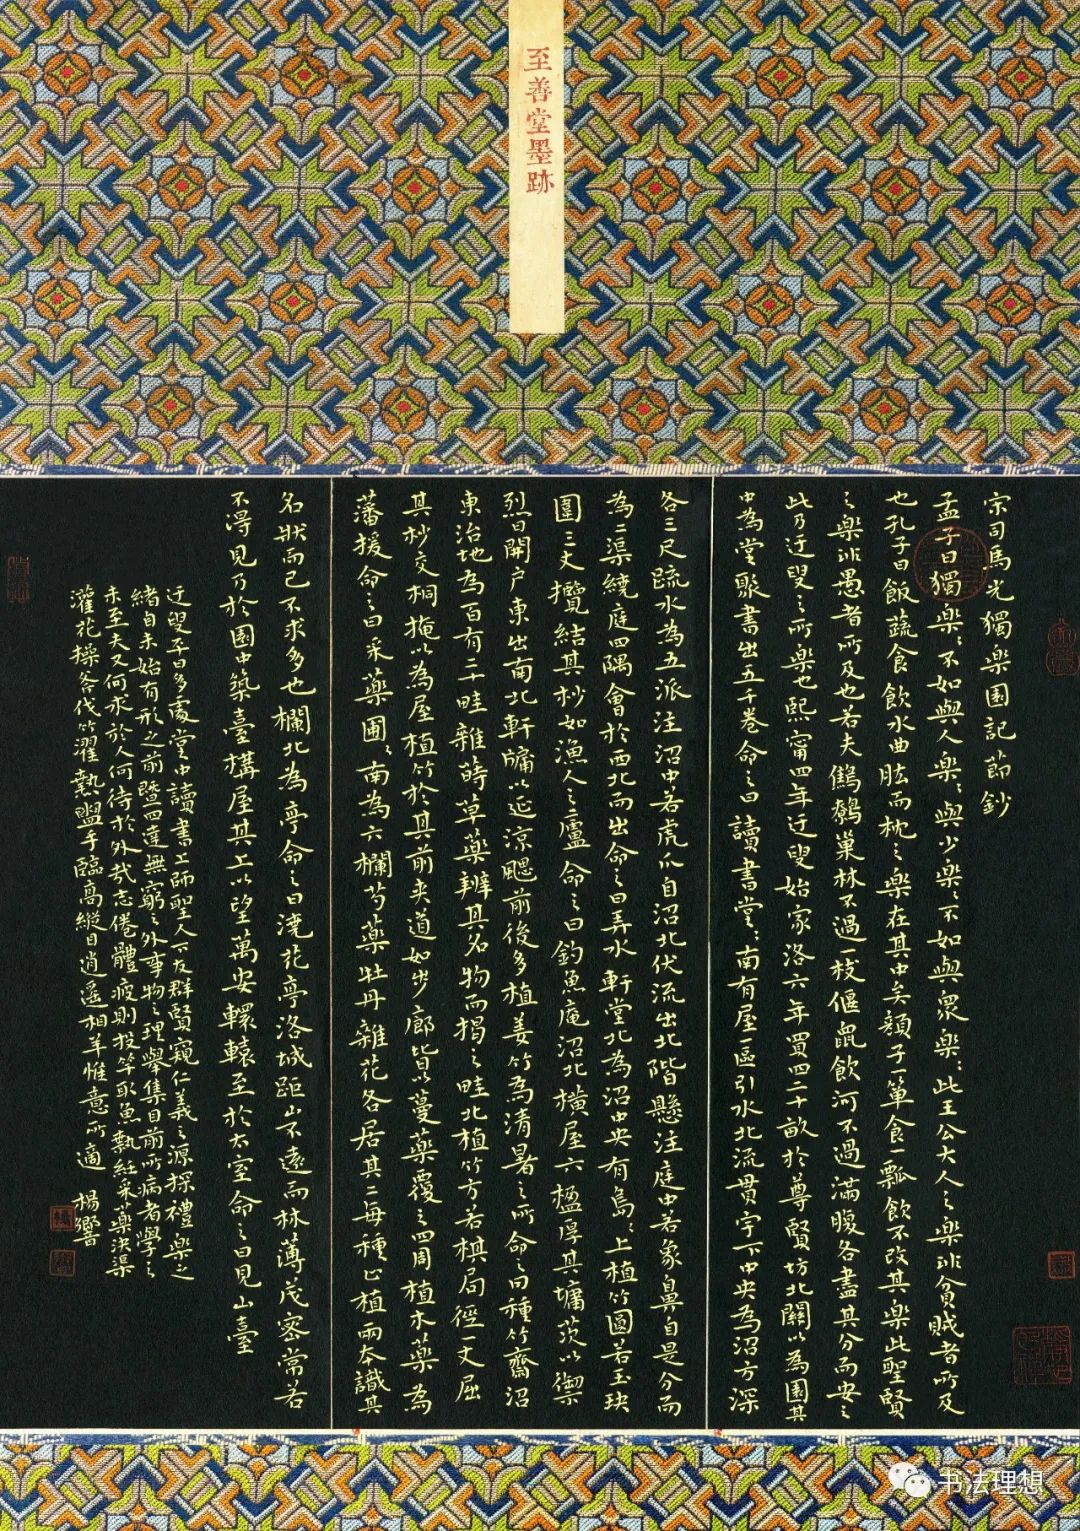 至善堂墨跡
宋司馬光獨樂園記節鈔
孟子曰獨樂樂不如與人樂樂與少樂樂不如與衆樂樂此王公大人之樂非貧賤者所及
也孔子曰飯蔬食飲水曲肱而枕之樂在其中矣顏子一簞食一瓢飲不改其樂此聖賢
之樂非愚者所及也若夫鷦鷯巢林不過一枝偃鼠飲河不過滿腹各盡其分而安之
此乃迂叟之所樂也熙甯四年迂叟始家洛六年買田二十畝於尊賢坊北關以為園其
中為堂聚書出五千卷命之曰讀書堂堂南有屋一區引水北流貫宇下中央為沼方深
各三尺疏水為五派注沼中若虎爪自沼北伏流出北階懸注庭中若象鼻自是分而
為二渠繞庭四隅會於西北而出命之曰弄水軒堂北為沼中央有島島上植竹圓若玉玦
圍三丈攬結其杪如漁人之廬命之曰釣魚庵沼北橫屋六楹厚其墉茨以禦
烈日開戶東出南北軒牖以延涼颸前後多植美竹為清暑之所命之曰種竹齋沼
東治地為百有二十畦雜蒔草藥辨其名物而揭之畦北植竹方若棋局徑一丈屈
其杪交桐掩以為屋植竹於其前夾道如步廊皆以蔓藥覆之四周植木藥為
藩援命之曰采藥圃圃南為六欄芍藥牡丹雜花各居其二每種止植兩本識其
名狀而已不求多也欄北為亭命之曰澆花亭洛城距山不遠而林薄茂密常若
不得見乃於園中築臺構屋其上以望萬安轘轅至於太室命之曰見山臺
迂叟平日多處堂中讀書上師聖人下友群賢窺仁義之源探禮樂之
緒自未始有形之前暨四達無窮之外事物之理舉集目前所病者學之
未至夫又何求於人何待於外哉志倦體疲則投竿取魚執衽采藥決渠
灌花操斧伐竹濯熱盥手臨高縱目逍遙相羊惟意所適 楊響
书法理想